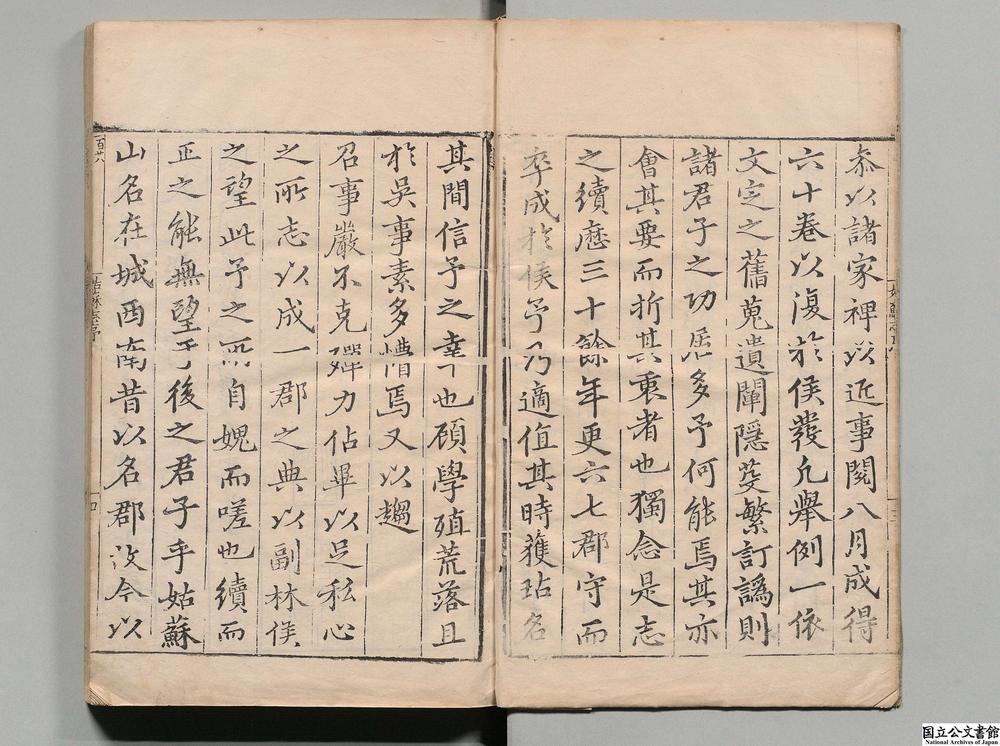 叅以諸家裨以近事閱八月成得
六十卷以復於侯發凡舉例一依
文定之舊蒐遺闡隱芟繁訂譌則
諸君子之功居多予何能焉其亦
會其要而折其衷者也獨念是志
之續歴三十餘年更六七郡守而
卒成於侯予乃適值其時獲玷名
其間信予之幸也碩學殖荒落且
於吳事素多懵焉又以趨
召事嚴不克殫力佔畢以足私心
之所志以成一郡之典以副林侯
之望此予之所自媿而嗟也續而
正之能無望于後之君子乎姑蘇
山名在城西南昔以名郡故今以
百廿八
四
国立公文書館
National Archives of Japan